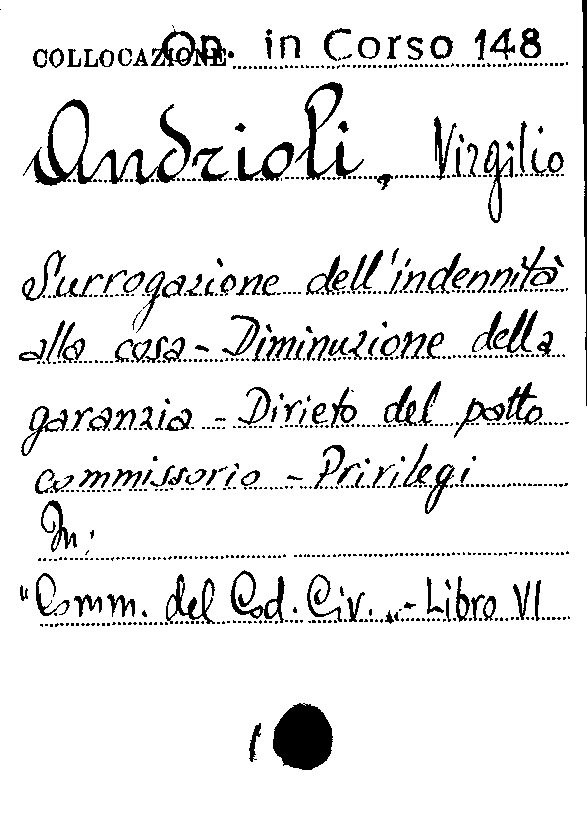 COLLOCAZIONE Op. in Corso 148
Andrioli, Virgilio
Surrogazione dell'indennità
alla cosa - Diminuzione della
garanzia - Divieto del patto
commissorio - Privilegi
In:
"Comm. del Cod. Civ. „ - Libro VI
1